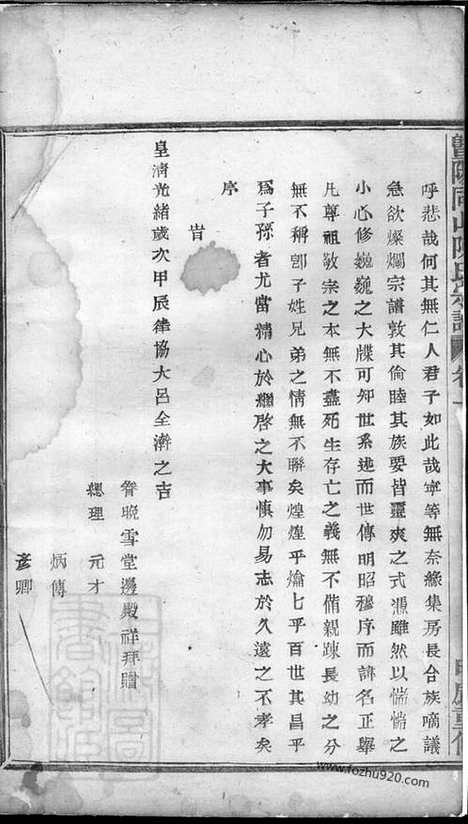 暨陽同山陳氏宗譜 卷一
呼悲哉何其無仁人君子如此哉寧等無奈緣集房長合族嘀議
急欲燦爛宗譜敦其倫睦其族要皆靈爽之式憑雖然以惴惴之
小心修巍巍之大牒可知世系述而世傳明昭穆序而諱名正舉
凡尊祖敬宗之本無不盡死生存亡之義無不備親疎長幼之分
無不稱卽子姓兄弟之情無不聯矣煌煌乎爚七乎百世其昌乎
為子孫者尤當精心於繼啓之大事慎勿易志於久遠之不孝矣
序
旹
皇淸光緒歲次甲辰律協大呂全澣之吉
眷晩雪堂邊殿祥拜贈
總理 元才
炳傳
彥卿
www.fozhu920.com